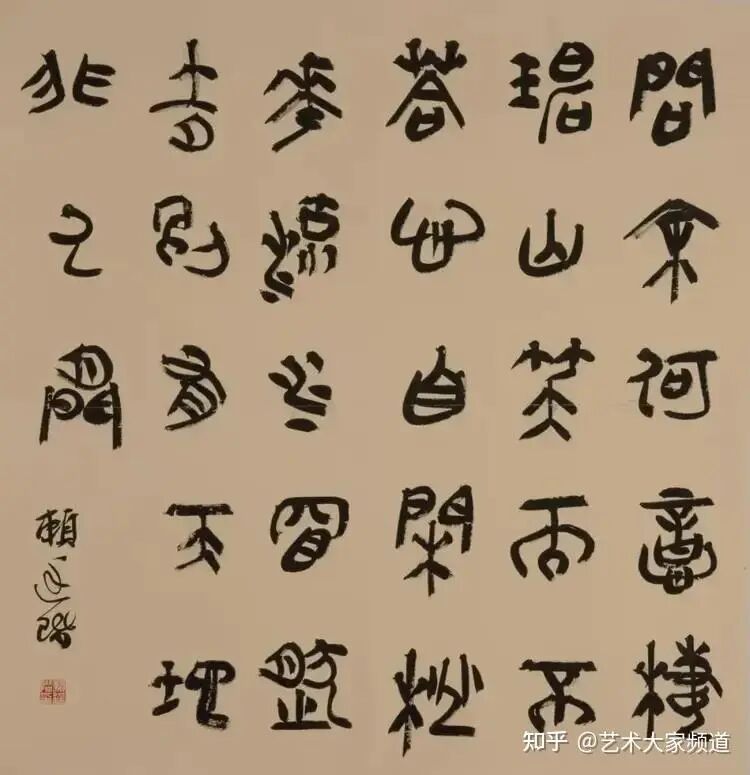 問余何意棲
碧山笑而不
荅心自閑桃
華流水窅然
去別有天地
非人間
賴廷階
知乎 @艺术大家频道